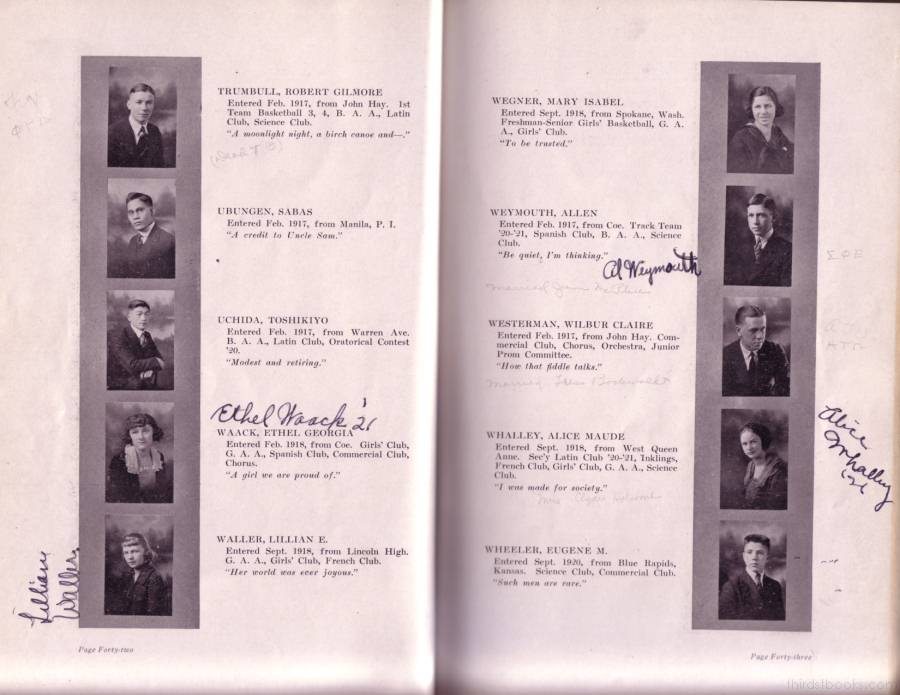 TRUMBULL, ROBERT GILMORE
Entered Feb. 1917, from John Hay. 1st
Team Basketball 3, 4, B. A. A., Latin
Club, Science Club.
"A moonlight night, a birch canoe and—."
UBUNGEN, SABAS
Entered Feb. 1917, from Manila, P. I.
"A credit to Uncle Sam."
UCHIDA, TOSHIKIYO
Entered Feb. 1917, from Warren Ave.
B. A. A., Latin Club, Oratorical Contest
'20.
"Modest and retiring."
Ethel Waack '21
WAACK, ETHEL GEORGIA
Entered Feb. 1918, from Coe. Girls' Club,
G. A. A., Spanish Club, Commercial Club,
Chorus.
"A girl we are proud of."
WALLER, LILLIAN E.
Entered Sept. 1918, from Lincoln High.
G. A. A., Girls' Club, French Club.
"Her world was ever joyous."
Lillian
Waller
Page Forty-two
WEGNER, MARY ISABEL
Entered Sept. 1918, from Spokane, Wash.
Freshman-Senior Girls' Basketball, G. A.
A., Girls' Club.
"To be trusted."
WEYMOUTH, ALLEN
Entered Feb. 1917, from Coe. Track Team
'20-'21, Spanish Club, B. A. A., Science
Club.
"Be quiet, I'm thinking."
Al Weymouth
Married
ΣΦΕ
WESTERMAN, WILBUR CLAIRE
Entered Feb. 1917, from John Hay. Com-
mercial Club, Chorus, Orchestra, Junior
Prom Committee.
"How that fiddle talks."
Married
WHALLEY, ALICE MAUDE
Entered Sept. 1918, from West Queen
Anne. Sec'y Latin Club '20-'21, Inklings,
French Club, Girls' Club, G. A. A., Science
Club.
"I was made for society."
Mrs.
Alice
Whalley
'21
WHEELER, EUGENE M.
Entered Sept. 1920, from Blue Rapids,
Kansas. Science Club, Commercial Club.
"Such men are rare."
Page Forty-three
thirdstbooks.com